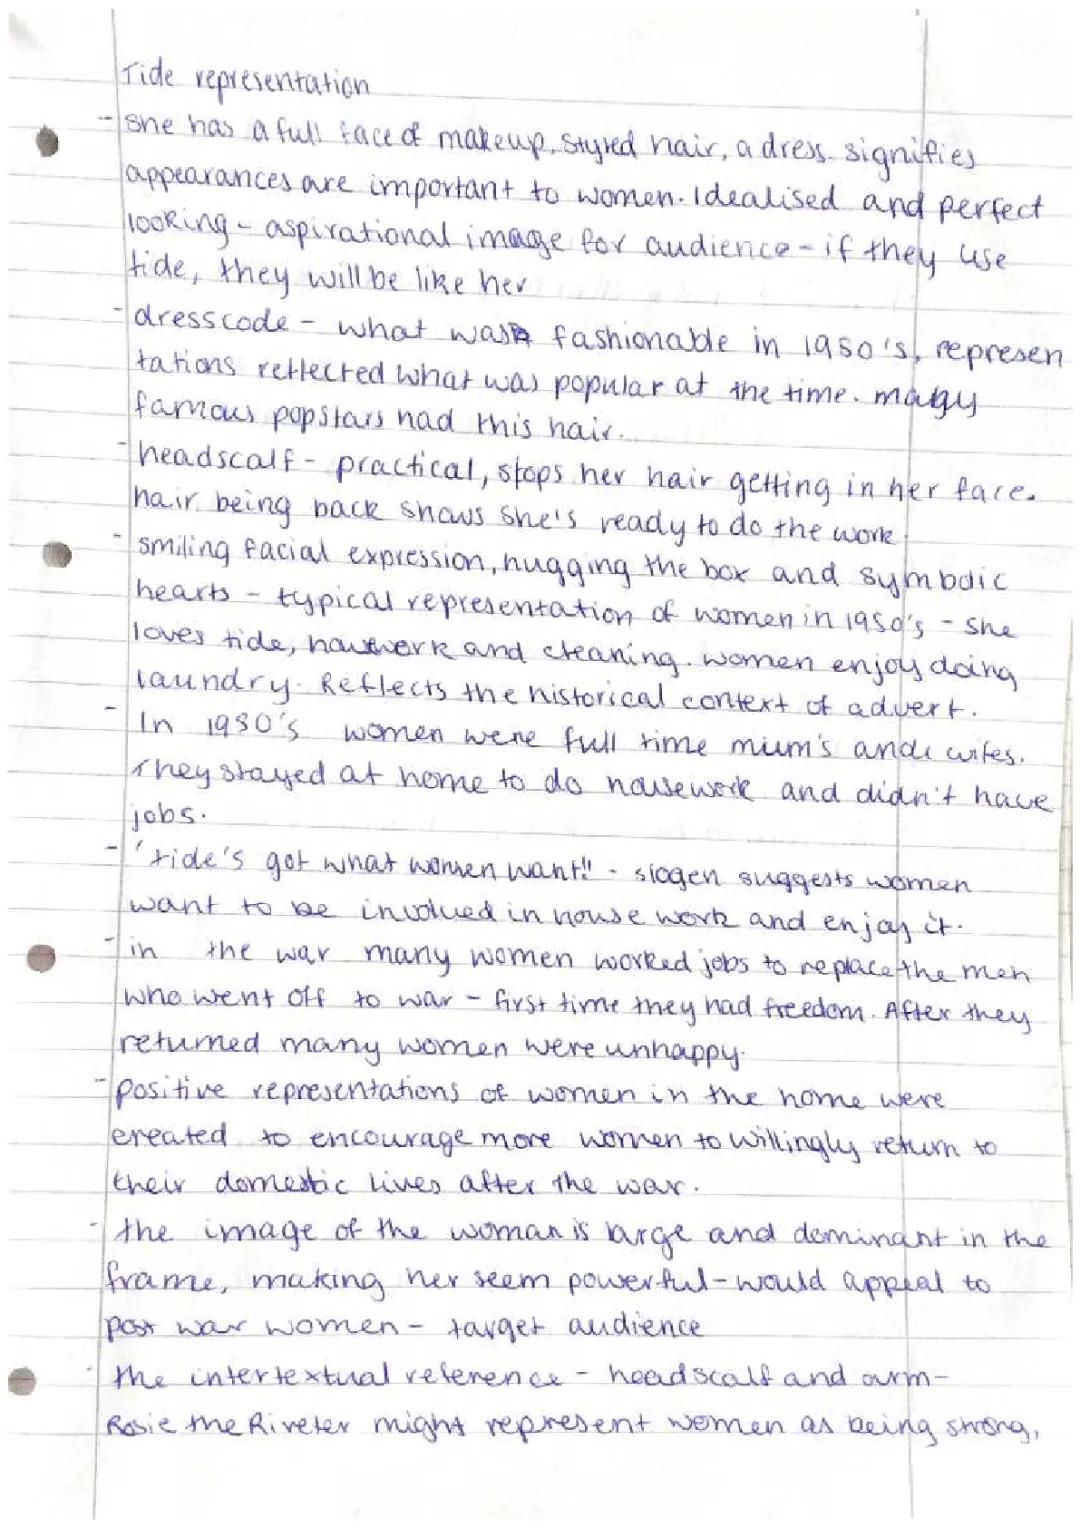 Tide representation
- she has a full face of makeup, styled hair, a dress. signifies
appearances are important to women. Idealised and perfect
looking - aspirational image for audience - if they use
tide, they will be like her
- dresscode - what was fashionable in 1950's, represen
tations reflected what was popular at the time. many
famous popstars had this hair.
- headscalf - practical, stops her hair getting in her face.
hair being back shows she's ready to do the work
- smiling facial expression, hugging the box and symbolic
hearts - typical representation of women in 1950's - she
loves tide, housework and cleaning. women enjoy doing
laundry. Reflects the historical context of advert.
- In 1950's women were full time mum's and wifes.
They stayed at home to do housework and didn't have
jobs.
- 'tide's got what women want!' - slogen suggests women
want to be involved in house work and enjoy it.
- in the war many women worked jobs to replace the men
who went off to war - first time they had freedom. After they
returned many women were unhappy.
- positive representations of women in the home were
created to encourage more women to willingly return to
their domestic lives after the war.
- the image of the woman is large and dominant in the
frame, making her seem powerful - would appeal to
post war women - target audience
- the intertextual reference - headscalf and arm -
Rosie the Riveter might represent women as being strong,